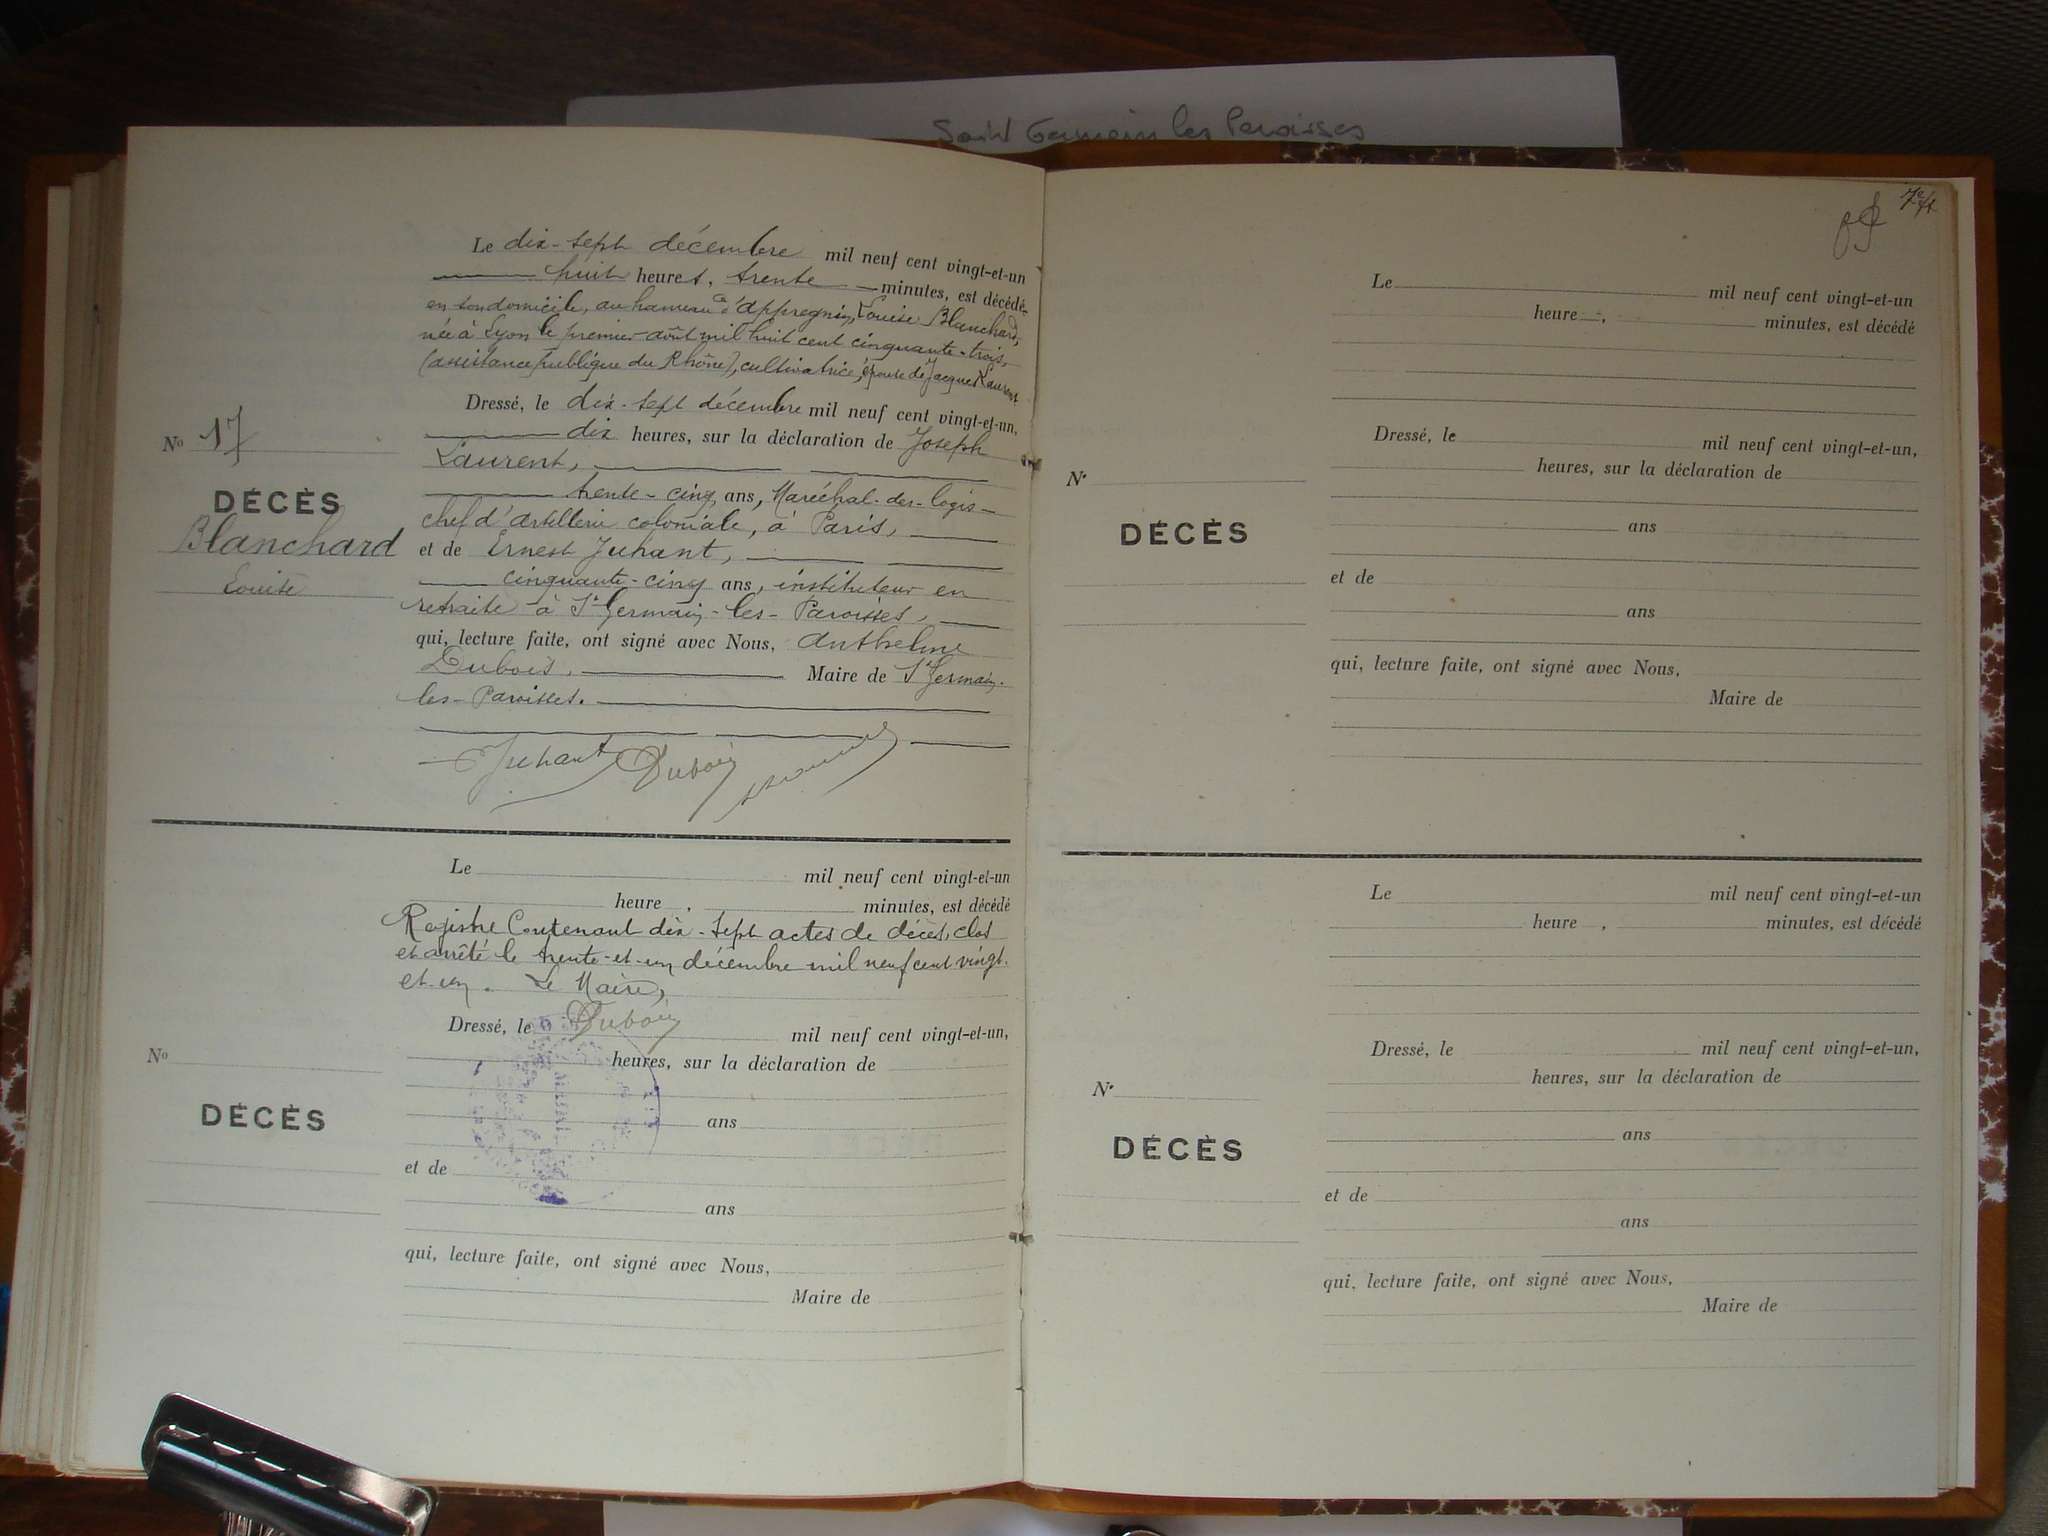 Saint Germain les Paroisses
Le dix-sept décembre mil neuf cent vingt-et-un
huit heures, trente minutes, est décédée
en son domicile, au hameau d'Appregnin, Louise Blanchard,
née à Lyon le premier août mil huit cent cinquante-trois,
(assistance publique du Rhône), cultivatrice, épouse de Jacques Laurent
Dressé, le dix-sept décembre mil neuf cent vingt-et-un,
dix heures, sur la déclaration de Joseph
Laurent,
trente-cinq ans, Maréchal-des-logis-
chef d'artillerie coloniale, à Paris,
et de Ernest Juhant,
cinquante-cinq ans, instituteur en
retraite à St Germain-les-Paroisses,
qui, lecture faite, ont signé avec Nous, Anthelme
Dubois, Maire de St Germain-
les-Paroisses.
Juhant Dubois
No 17
DÉCÈS
Blanchard
Louise
Le mil neuf cent vingt-et-un
heure , minutes, est décédé
Registre Contenant dix-sept actes de décès, clos
et arrêté le trente-et-un décembre mil neuf cent vingt-
et-un. Le Maire,
Dubois
Dressé, le mil neuf cent vingt-et-un,
heures, sur la déclaration de
ans
et de
ans
qui, lecture faite, ont signé avec Nous,
Maire de
No
DÉCÈS
Le mil neuf cent vingt-et-un
heure , minutes, est décédé
Dressé, le mil neuf cent vingt-et-un,
heures, sur la déclaration de
ans
et de
ans
qui, lecture faite, ont signé avec Nous,
Maire de
N•
DÉCÈS
Le mil neuf cent vingt-et-un
heure , minutes, est décédé
Dressé, le mil neuf cent vingt-et-un,
heures, sur la déclaration de
ans
et de
ans
qui, lecture faite, ont signé avec Nous,
Maire de
N•
DÉCÈS